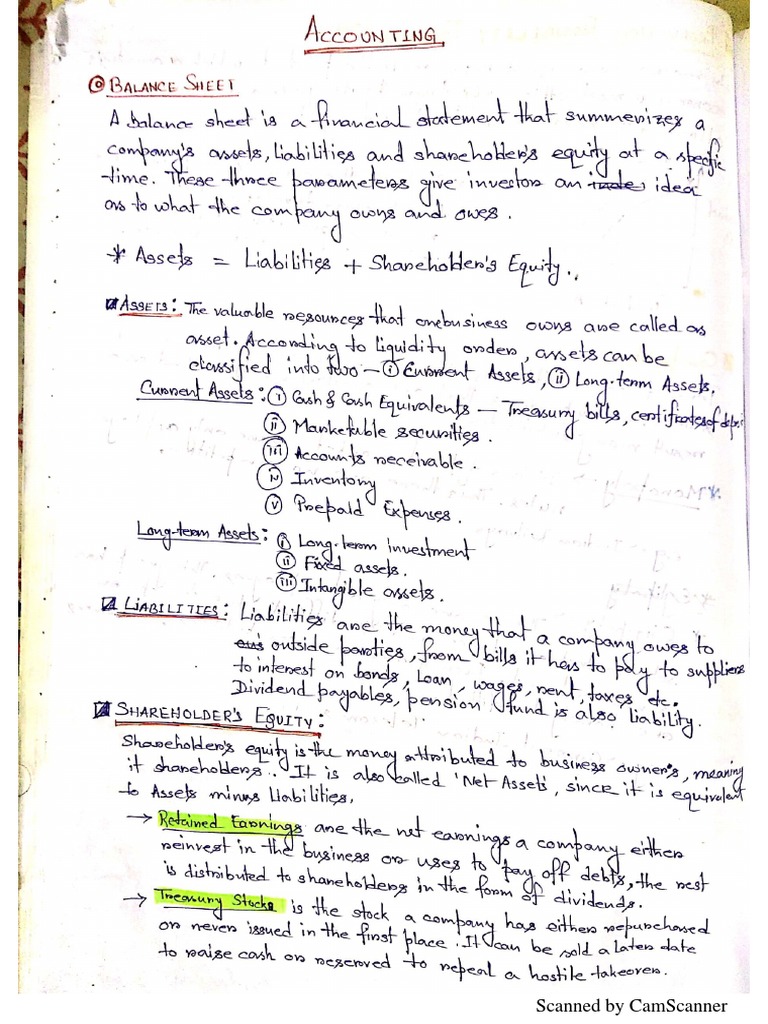 ACCOUNTING
BALANCE SHEET
A Balance sheet is a financial statement that summerizes a
company's assets, liabilities and shareholder's equity at a specific
time. These three parameters give investor an idea
as to what the company owns and owes.
* Assets = Liabilities + Shareholder's Equity.
ASSETS: The valuable resources that onebusiness owns are called as
asset. According to liquidity order, assets can be
classified into two – (i) Current Assets, (ii) Long-term Assets.
Current Assets: (i) Cash & Cash Equivalents – Treasury bills, certificates of
(ii) Marketable securities.
(iii) Accounts receivable.
(iv) Inventory
(v) Prepaid Expenses.
Long-term Assets: (i) Long-term investment
(ii) Fixed assets.
(iii) Intangible assets.
LIABILITIES: Liabilities are the money that a company owes to
outside parties, from bills it has to pay to suppliers
to interest on bonds, Loan, wages, rent, taxes etc.
Dividend payables, pension fund is also liability.
SHAREHOLDER'S EQUITY:
Shareholder's equity is the money attributed to business owner's, meaning
it shareholders. It is also called 'Net Assets', since it is equivalent
to Assets minus Liabilities.
→ Retained Earnings are the net earnings a company either
reinvest in the business or uses to pay off debts, the rest
is distributed to shareholders in the form of dividends.
→ Treasury Stocks is the stock a company has either repurchased
or never issued in the first place. It can be sold a later date
to raise cash or reserved to repeal a hostile takeover.
Scanned by CamScanner